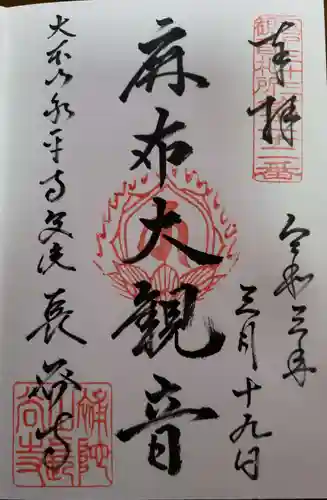 奉拝
令和三年
三月十九日
麻布大観音
大本山永平寺別院長谷寺